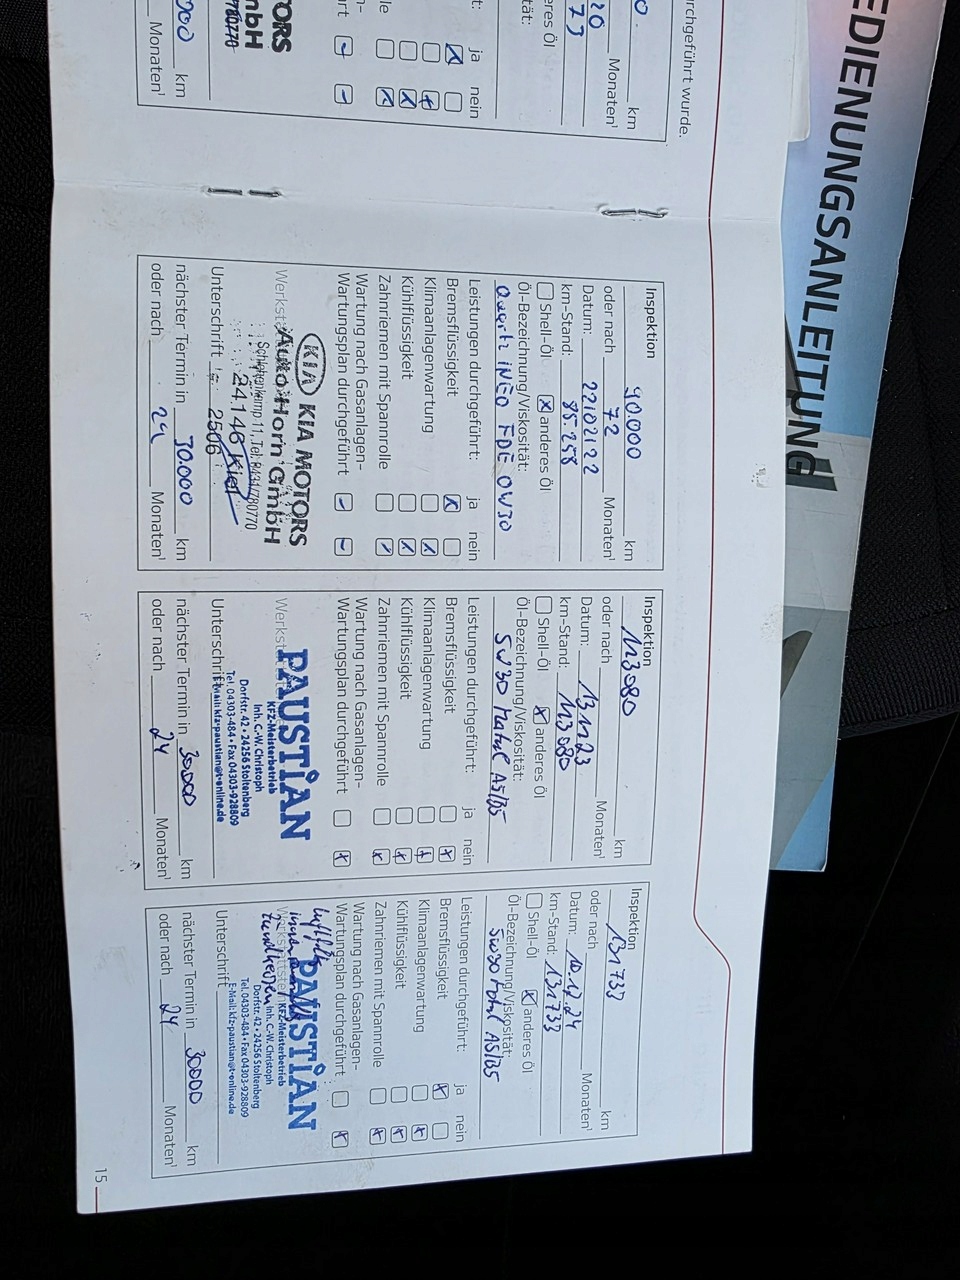 BEDIENUNGSANLEITUNG
durchgeführt wurde.
km
Monaten¹
anderes Öl
ja nein
Monaten¹
km
Inspektion
90.000 km
oder nach 72 Monaten¹
Datum: 22.02.22
km-Stand: 85.258
Shell-Öl x anderes Öl
Öl-Bezeichnung/Viskosität:
Quartz INEO FDE 0W30
Leistungen durchgeführt: ja nein
Bremsflüssigkeit x
Klimaanlagenwartung x
Kühlflüssigkeit x
Zahnriemen mit Spannrolle x
Wartung nach Gasanlagen-
Wartungsplan durchgeführt - -
KIA KIA MOTORS
Auto Horn GmbH
11, Tel. 0431/780770
24.146 Kiel
2506
Unterschrift
nächster Termin in 30.000 km
oder nach 24 Monaten¹
Inspektion
113080 km
oder nach Monaten¹
Datum: 13.11.23
km-Stand: 113080
Shell-Öl x anderes Öl
Öl-Bezeichnung/Viskosität:
5W30 A5/B5
Leistungen durchgeführt: ja nein
Bremsflüssigkeit x
Klimaanlagenwartung x
Kühlflüssigkeit x
Zahnriemen mit Spannrolle x
Wartung nach Gasanlagen-
Wartungsplan durchgeführt x
PAUSTIAN
KFZ-Meisterbetrieb
Inh. C.-W. Christoph
Dorfstr. 42 • 24256 Stoltenberg
Tel. 04303-484 • Fax 04303-928809
E-Mail: kfz-paustian@t-online.de
Unterschrift
nächster Termin in 30000 km
oder nach 24 Monaten¹
Inspektion
131733 km
oder nach Monaten¹
Datum: 10.12.24
km-Stand: 131733
Shell-Öl x anderes Öl
Öl-Bezeichnung/Viskosität:
5W30 Total A5/B5
Leistungen durchgeführt: ja nein
Bremsflüssigkeit x
Klimaanlagenwartung x
Kühlflüssigkeit x
Zahnriemen mit Spannrolle x
Wartung nach Gasanlagen-
Wartungsplan durchgeführt x
PAUSTIAN
KFZ-Meisterbetrieb
Inh. C.-W. Christoph
Dorfstr. 42 • 24256 Stoltenberg
Tel. 04303-484 • Fax 04303-928809
E-Mail: kfz-paustian@t-online.de
Unterschrift
nächster Termin in 30000 km
oder nach 24 Monaten¹
15